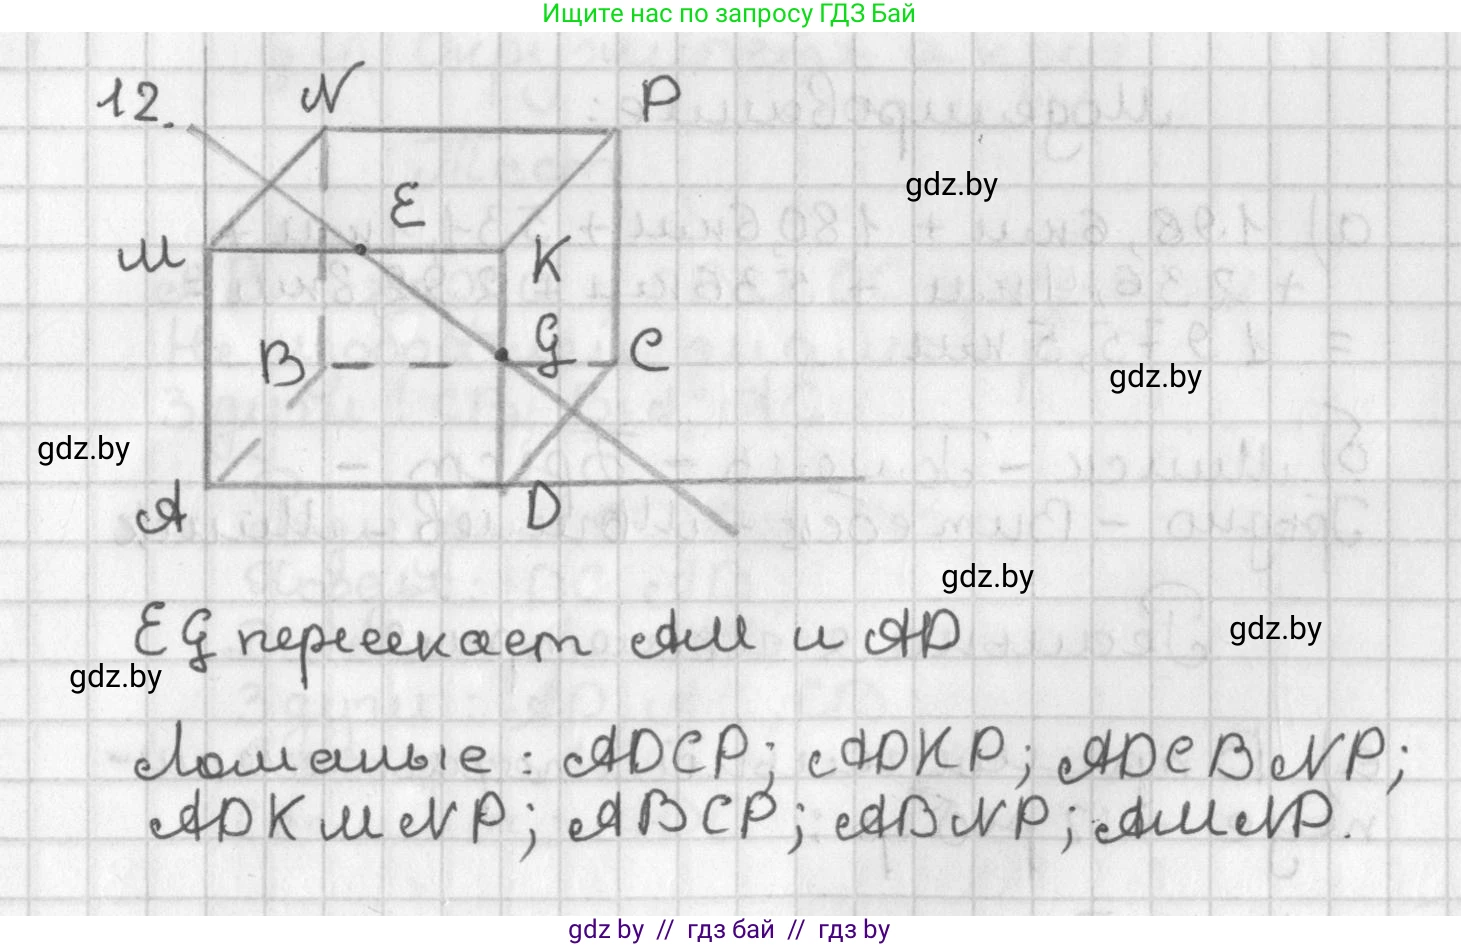 Ищите нас по запросу ГДЗ Бай
12.
N
P
E
M
K
gdz.by
B
G
C
gdz.by
gdz.by
A
D
gdz.by
EG пересекает AM и AD
gdz.by
gdz.by
Ломаные: ADCP; ADKP; ADCBNP;
ADKMNP; ABCP; ABNP; AMNP.
gdz by // гдз бай // гдз by